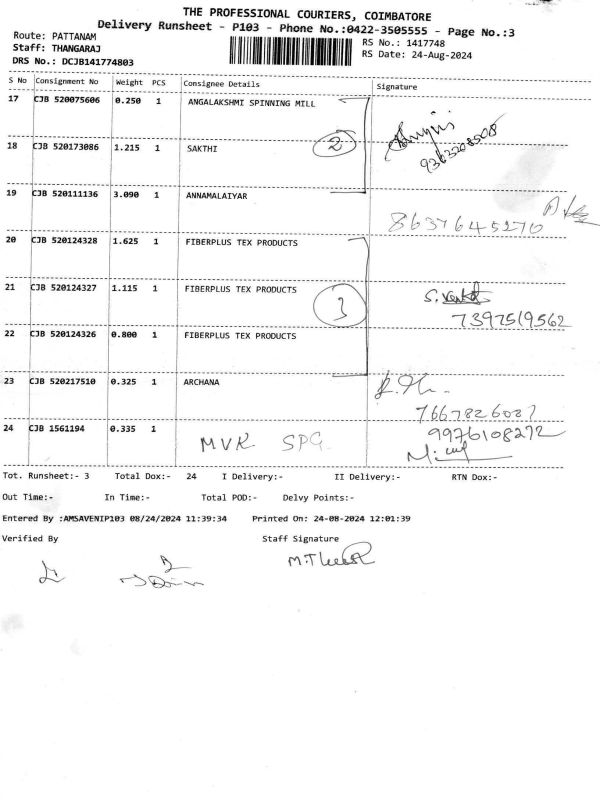 THE PROFESSIONAL COURIERS, COIMBATORE
Delivery Runsheet - P103 - Phone No.:0422-3505555 - Page No.:3
Route: PATTANAM
RS No.: 1417748
Staff: THANGARAJ
RS Date: 24-Aug-2024
DRS No.: DCJB141774803
S No Consignment No Weight PCS Consignee Details Signature
17 CJB 520075606 0.250 1 ANGALAKSHMI SPINNING MILL
2
9363208508
18 CJB 520173086 1.215 1 SAKTHI
19 CJB 520111136 3.090 1 ANNAMALAIYAR
8637645270
20 CJB 520124328 1.625 1 FIBERPLUS TEX PRODUCTS
21 CJB 520124327 1.115 1 FIBERPLUS TEX PRODUCTS
3
S. Venkat
7397519562
22 CJB 520124326 0.800 1 FIBERPLUS TEX PRODUCTS
23 CJB 520217510 0.325 1 ARCHANA
7667826027
24 CJB 1561194 0.335 1 MVR SPG
9976108272
Tot. Runsheet:- 3 Total Dox:- 24 I Delivery:- II Delivery:- RTN Dox:-
Out Time:- In Time:- Total POD:- Delvy Points:-
Entered By :AMSAVENIP103 08/24/2024 11:39:34 Printed On: 24-08-2024 12:01:39
Verified By Staff Signature